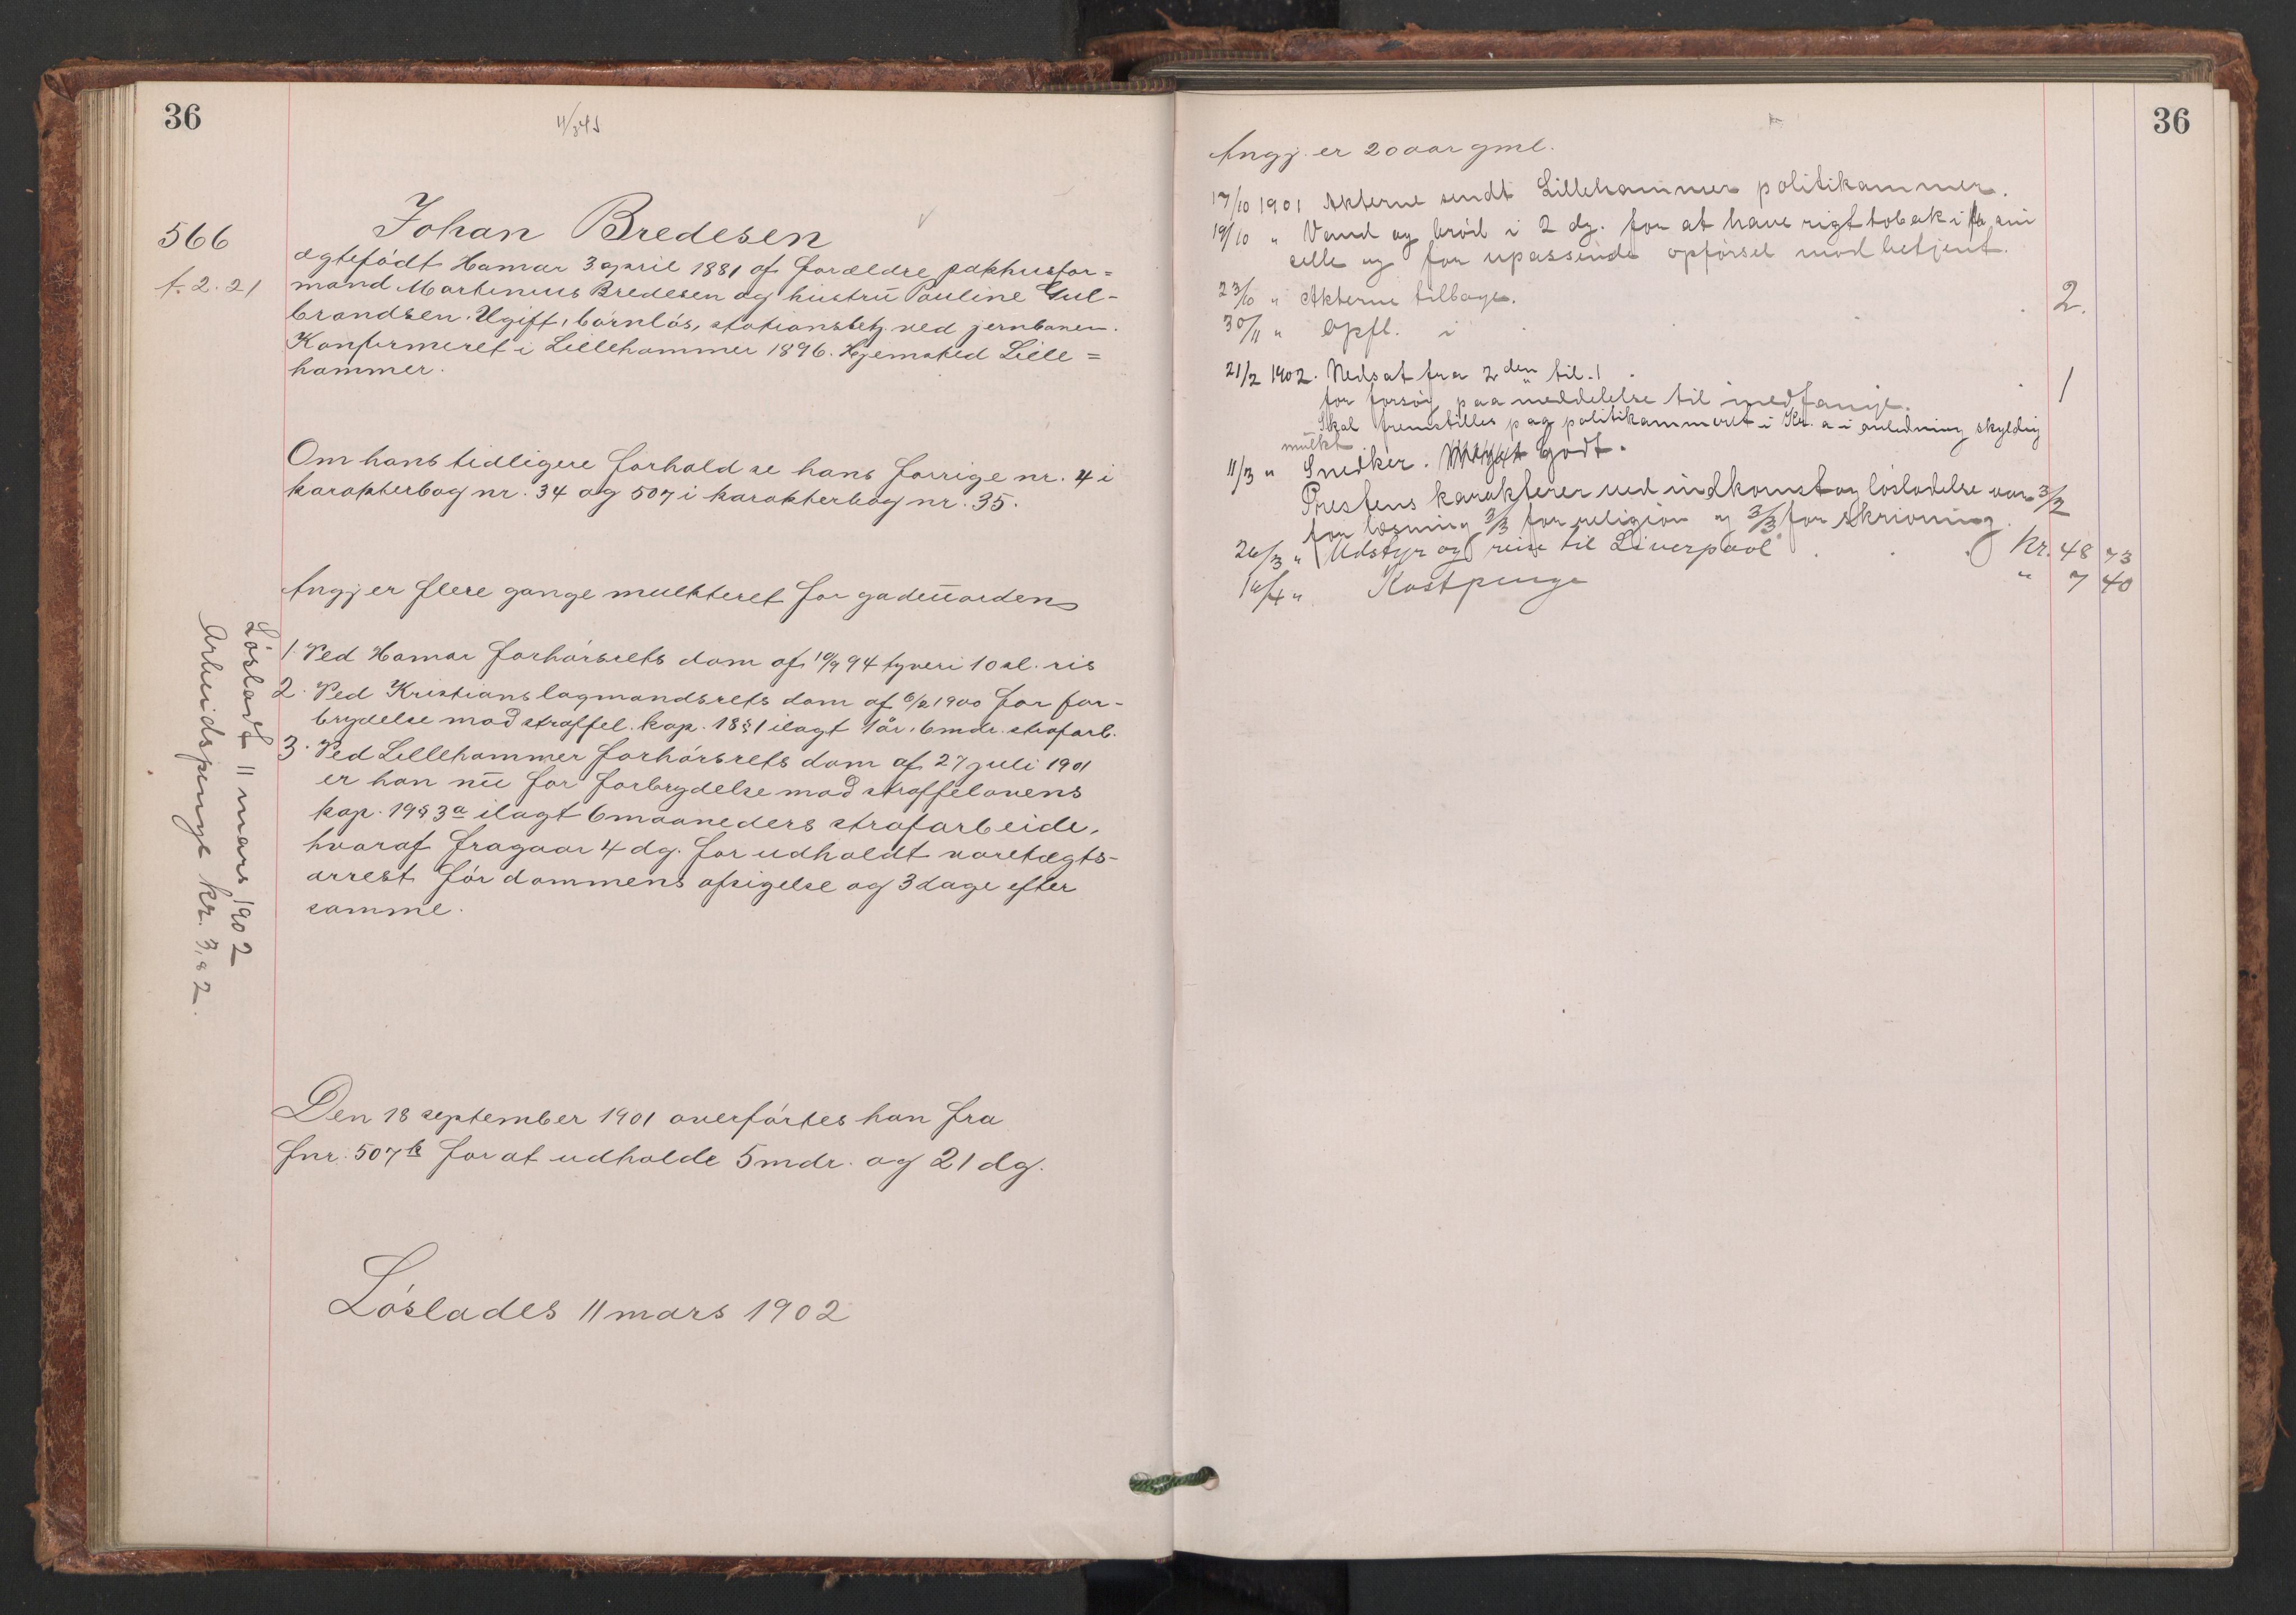 36
566
f. 2. 21
Johan Bredesen
ægtefödt Hamar 3 april 1881 af forældre pakhusfor=
mand Martinius Bredesen og hustru Pauline Gul-
brandsen. Ugift, börnlös, stationsbetj. ved jernbanen.
Konfirmeret i Lillehammer 1896. Hjemsted Lille=
hammer.
Om hans tidligere forhold se hans forrige nr. 4 i
karakterbog nr. 34 og 507 i karakterbog nr. 35.
Angj er flere gange mulkteret for gadeuorden
1. Ved Hamar forhörsrets dom af 10/9 94 tyveri 10 sl. ris
2. Ved Kristians lagmandsrets dom af 6/2 1900 for for-
brydelse mod straffel. kap. 18 § 1 ilagt 1 år, 6 mdr. strafarb.
3. Ved Lillehammer forhörsrets dom af 27 juli 1901
er han nu for forbrydelse mod straffelovens
kap. 19 § 3 a ilagt 6 maaneders strafarbeide,
hvoraf fragaar 4 dg. for udholdt varetægts-
arrest för dommens afsigelse og 3 dage efter
samme.
Lösladt 11 mars 1902
Arbeidspenge kr. 3,82.
Den 18 september 1901 overförtes han fra
fnr. 507 b for at udholde 5 mdr. og 21 dg.
Löslades 11 mars 1902
36
Angj. er 20 aar gml.
17/10 1901 Akterne sendt Lillehammer politikammer.
19/10 " Vand og bröd i 2 dg. for at have rigt tobak i sin
celle og for upassende opförsel mod betjent.
23/10 " Akterne tilbage.
30/11 " Opfl. i 2.
21/2 1902. Nedsat fra 2den til 1 1
for forsög paa meddelelse til medfange.
Skal fremstilles paa politikammeret i Kr.a i anledning skyldig
mulkt
11/3 " Snedker. Meget Godt.
Prestens karakterer ved indkomst og lösladelse var 3/2
for læsning 3/3 for religion og 3/3 for skrivning.
26/3 " Udstyr og reise til Liverpool Kr. 48 73
16/4 " Kostpenge " 7 40